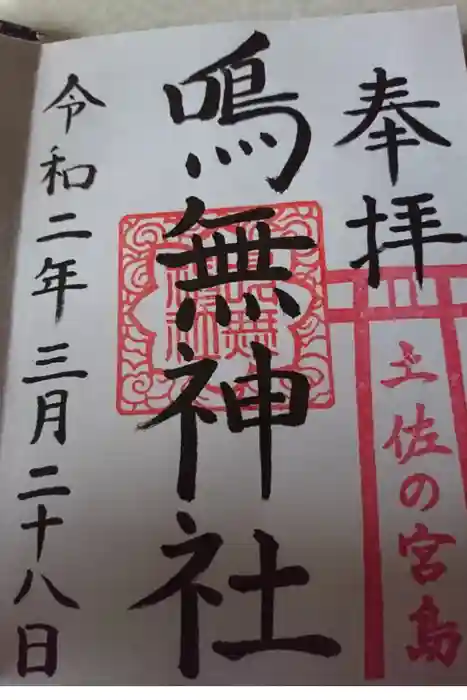 奉拝
土佐の宮島
鳴無神社
鳴無神社
令和二年三月二十八日